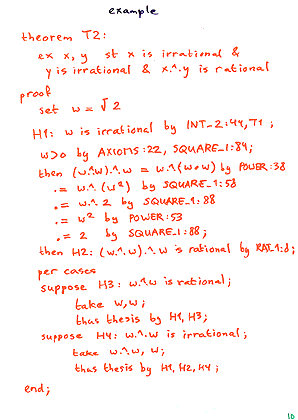 example
theorem T2:
ex x, y st x is irrational &
y is irrational & x.^.y is rational
proof
set w = √2
H1: w is irrational by INT_2:44,T1;
w>0 by AXIOMS:22, SQUARE_1:84;
then (w.^.w).^.w = w.^.(w•w) by POWER:38
.= w.^.(w²) by SQUARE_1:58
.= w.^.2 by SQUARE_1:88
.= w² by POWER:53
.= 2 by SQUARE_1:88;
then H2: (w.^.w).^.w is rational by RAT_1:8;
per cases
suppose H3: w.^.w is rational;
take w,w;
thus thesis by H1,H3;
suppose H4: w.^.w is irrational;
take w.^.w, w;
thus thesis by H1,H2,H4;
end;
10